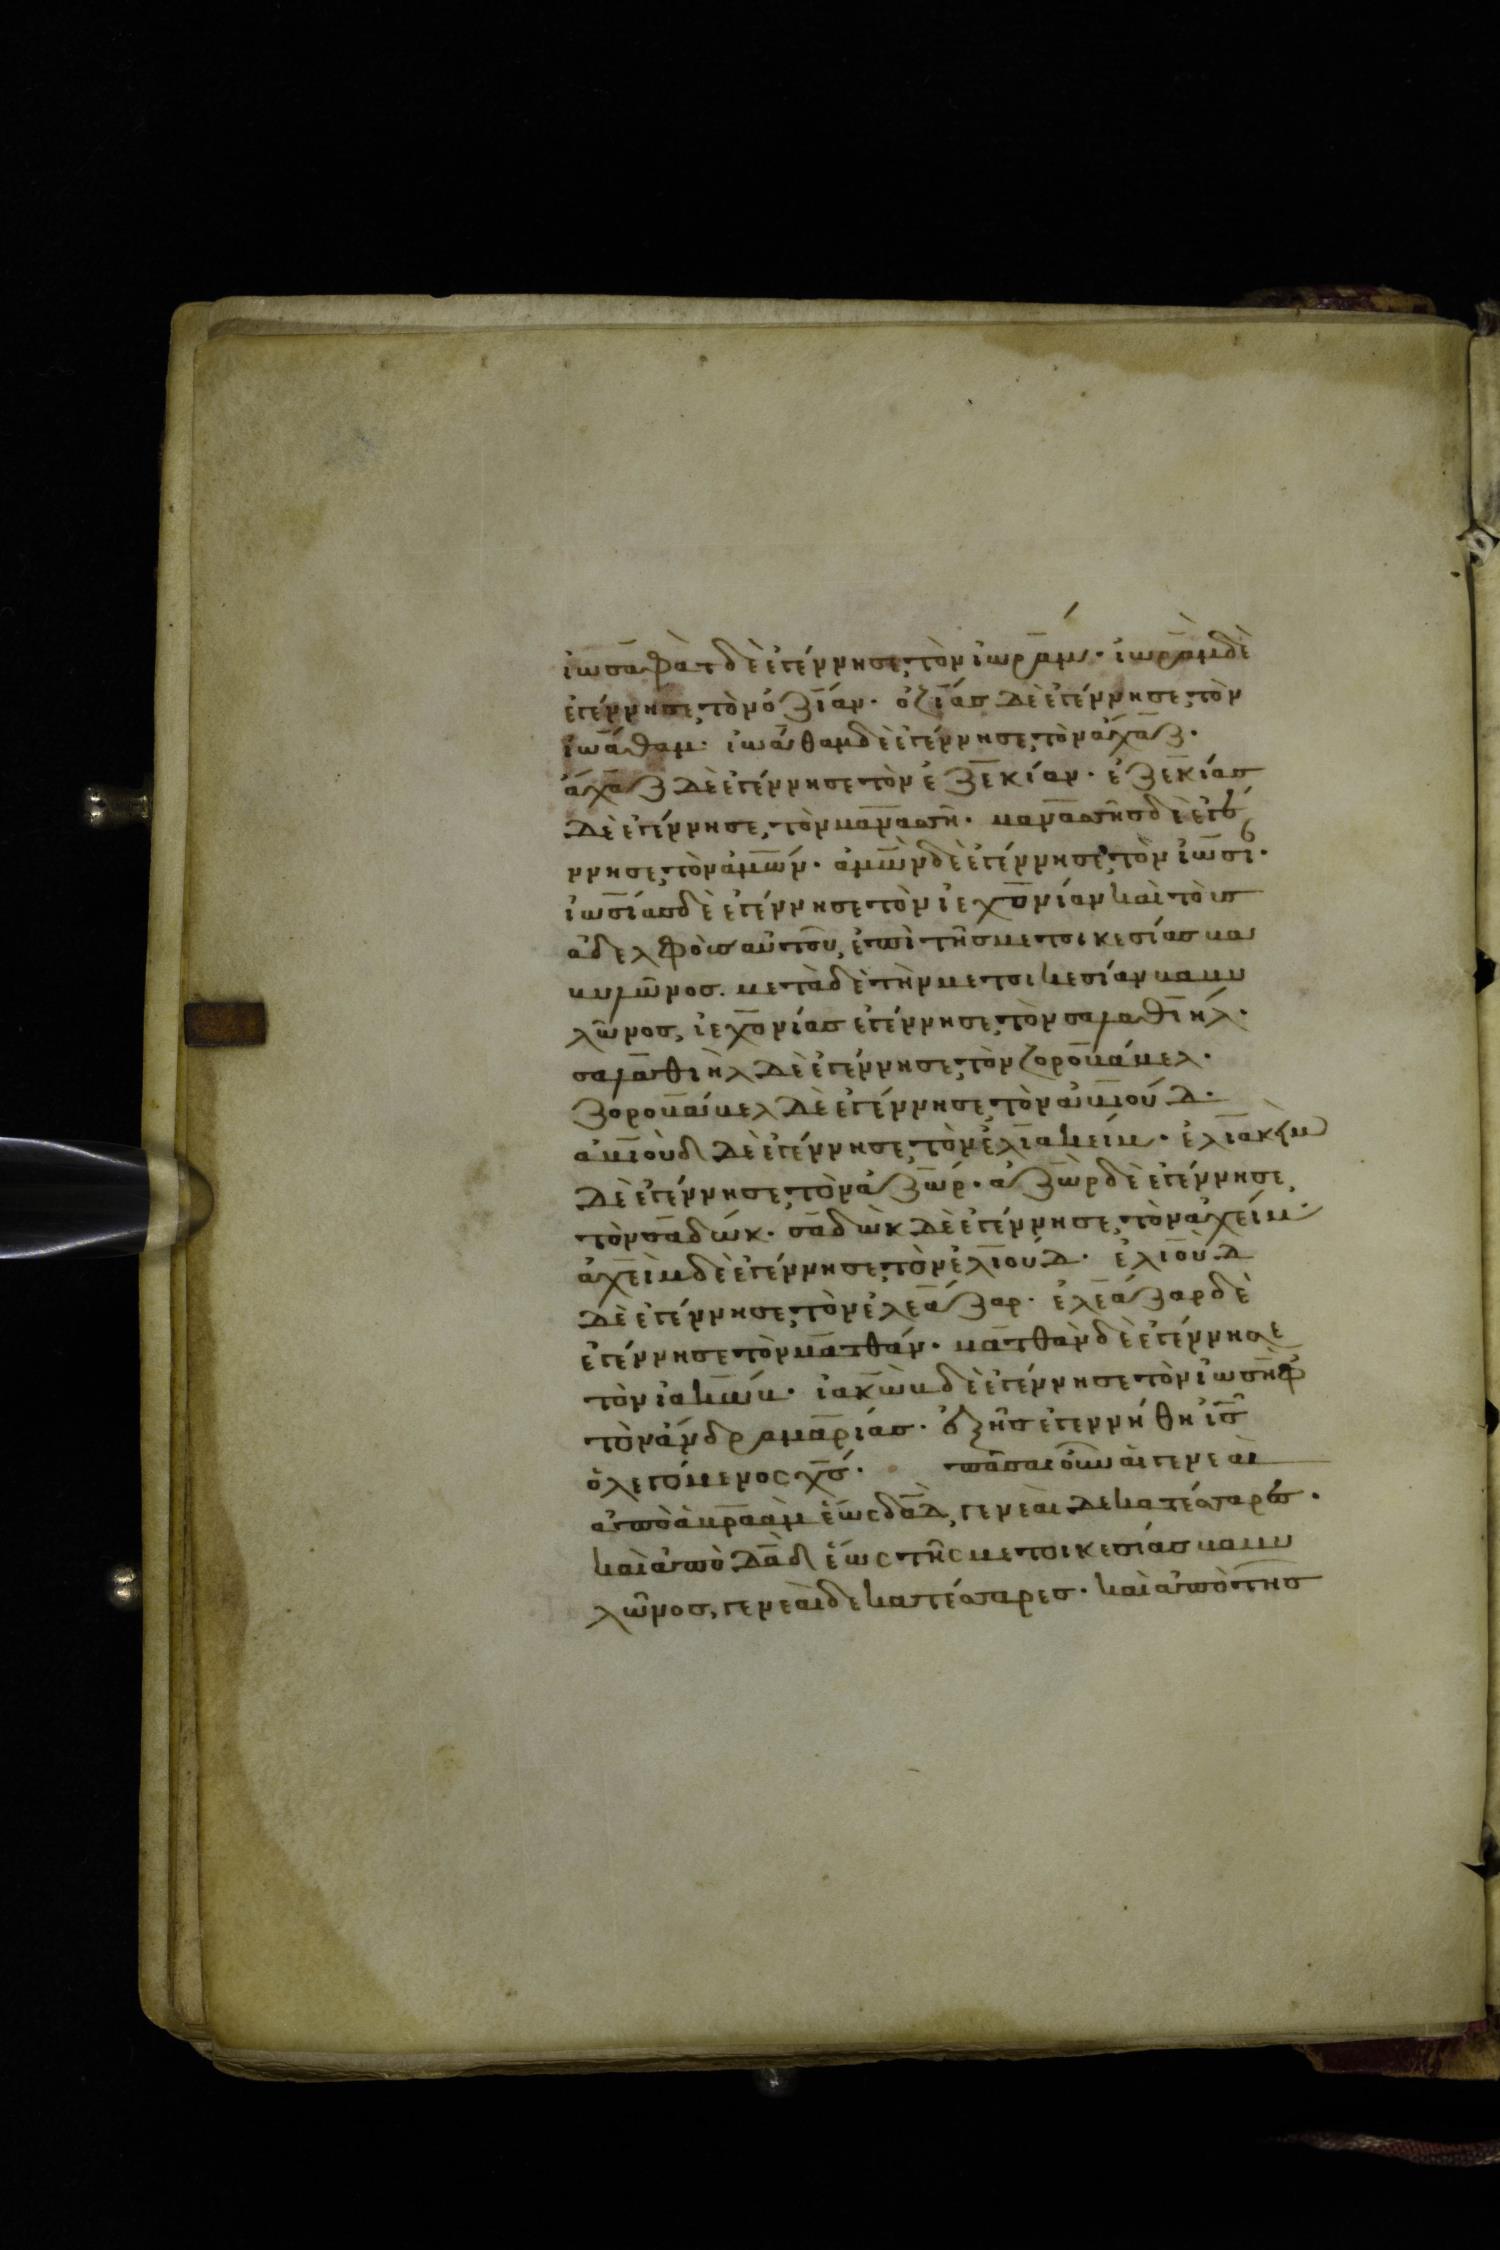 ἰωσαφὰτ δὲ ἐγέννησε, τὸν ἰωράμ· ἰωρὰμ δὲ
ἐγέννησε, τὸν ὀζίαν· ὀζίας δὲ ἐγέννησε, τὸν
ἰωάθαμ· ἰωάθαμ δὲ ἐγέννησε, τὸν ἄχαζ·
ἄχαζ δὲ ἐγέννησε τὸν ἐζεκίαν· ἐζεκίας
δὲ ἐγέννησε, τὸν μανασσῆ· μανασσῆς δὲ ἐγέ
ννησε, τὸν ἀμών· ἀμὼν δὲ ἐγέννησε, τὸν ἰωσί·
ἰωσίας δὲ ἐγέννησε τὸν ἰεχονίαν καὶ τοὺς
ἀδελφοὺς αὐτοῦ, ἐπὶ τῆς μετοικεσίας βα
βυλῶνος. μετὰ δὲ τὴν μετοικεσίαν βαβυ
λῶνος, ἰεχονίας ἐγέννησε, τὸν σαλαθιήλ·
σαλαθιὴλ δὲ ἐγέννησε, τὸν ζοροβάβελ·
ζοροβάβελ δὲ ἐγέννησε, τὸν ἀβιούδ·
ἀβιοὺδ δὲ ἐγέννησε, τὸν ἐλιακείμ· ἐλιακὶμ
δὲ ἐγέννησε, τὸν ἀζώρ· ἀζὼρ δὲ ἐγέννησε,
τὸν σαδώκ· σαδὼκ δὲ ἐγέννησε, τὸν ἀχείμ·
ἀχεὶμ δὲ ἐγέννησε, τὸν ἐλιούδ· ἐλιοὺδ
δὲ ἐγέννησε, τὸν ἐλεάζαρ· ἐλεάζαρ δὲ
ἐγέννησε τὸν ματθάν· ματθὰν δὲ ἐγέννησε
τὸν ἰακώβ· ἰακὼβ δὲ ἐγέννησε τὸν ἰωσὴφ
τὸν ἄνδρα μαρίας· ἐξ ἧς ἐγεννήθη ἰς
ὁ λεγόμενος χς· πᾶσαι οὖν αἱ γενεαὶ
ἀπὸ ἀβραὰμ ἕως δαδ, γενεαὶ δεκατέσσαρες·
καὶ ἀπὸ δαδ ἕως τῆς μετοικεσίας βαβυ
λῶνος, γενεαὶ δεκατέσσαρες· καὶ ἀπὸ τῆς